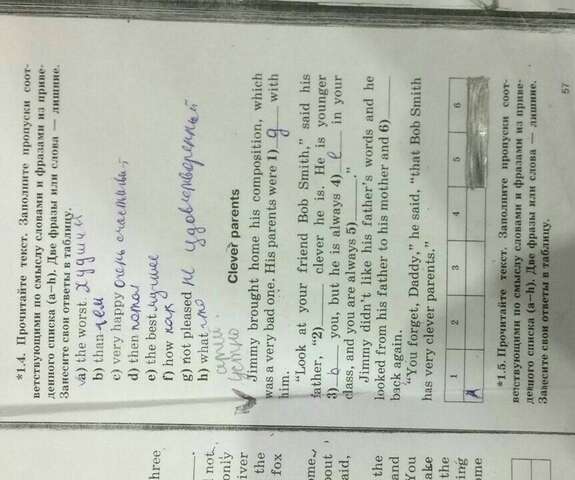 *1.4. Прочитайте текст. Заполните пропуски соот-
ветствующими по смыслу словами и фразами из приве-
денного списка (a–h). Две фразы или слова — лишние.
Занесите свои ответы в таблицу.
a) the worst худший
b) than чем
c) very happy очень счастливый
d) then потом
e) the best лучшее
f) how как
g) not pleased не удовлетворенный
h) what что
устно
Clever parents
Jimmy brought home his composition, which
was a very bad one. His parents were 1) g with
him.
"Look at your friend Bob Smith," said his
father, "2)____ clever he is. He is younger
3) b you, but he is always 4) e in your
class, and you are always 5)____."
Jimmy didn't like his father's words and he
looked from his father to his mother and 6)____
back again.
"You forget, Daddy," he said, "that Bob Smith
has very clever parents."
1 2 3 4 5 6
*1.5. Прочитайте текст. Заполните пропуски соот-
ветствующими по смыслу словами и фразами из приве-
денного списка (a–h). Две фразы или слова — лишние.
Занесите свои ответы в таблицу.
57
hree
not
only
iver
the
fox
ome
bout
aid,
the
and
You
ake
the
ing
ome